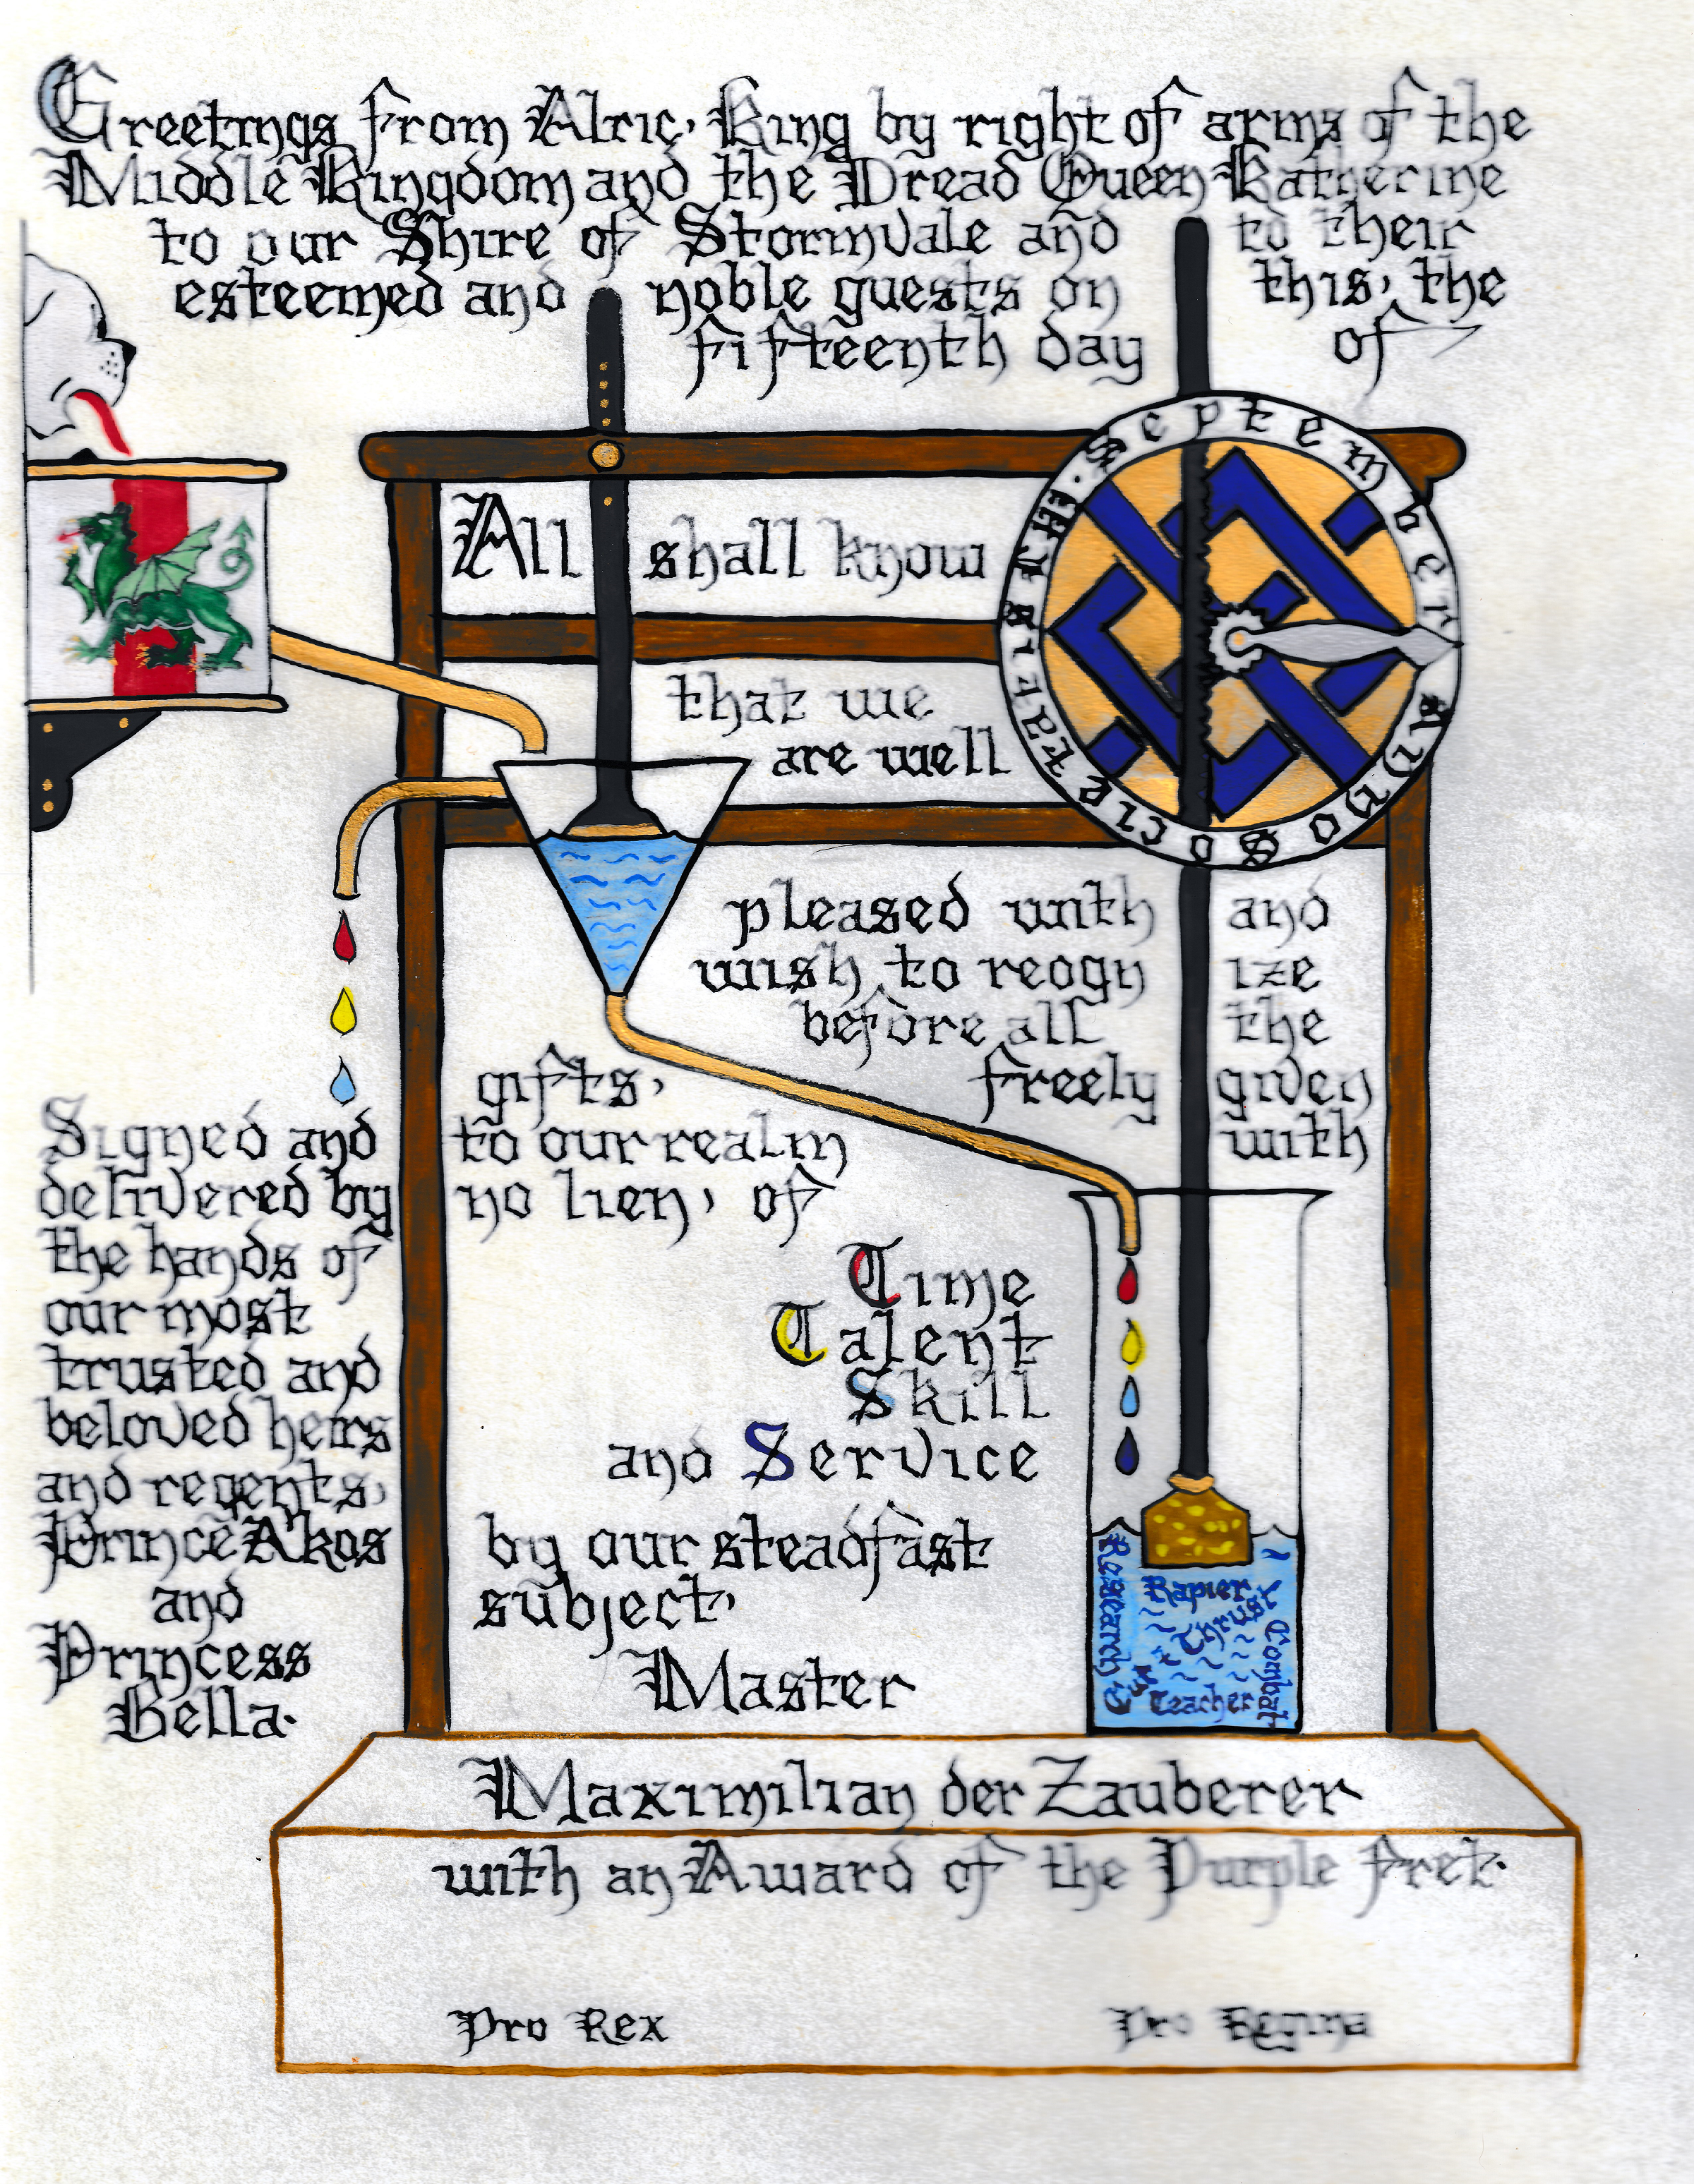 Greetings from Alric, King by right of arms of the
Middle Kingdom and the Dread Queen Katherine
to our Shire of Stormvale and to their
esteemed and noble guests on this, the
fifteenth day of
September Anno Societatis
All shall know
that we
are well
pleased with and
wish to reogn ize
before all the
freely given
gifts,
with
to our realm
no lien, of
Time
Talent
Skill
and Service
by our steadfast
subject,
Master
Maximilian der Zauberer
with an Award of the Purple Fret.
Research
Rapier
Cut
Thrust
Combat
Teacher
Signed and
delivered by
the hands of
our most
trusted and
beloved heirs
and regents,
Prince A'kos
and
Princess
Bella.
Pro Rex
Pro Regina